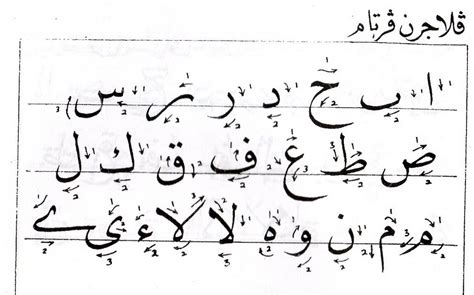 ڤلاجرن ڤرتام
ا ب ح د ر س
ص ط ع ف ق ك ل
م م ن و ه لا لا ء ی ے